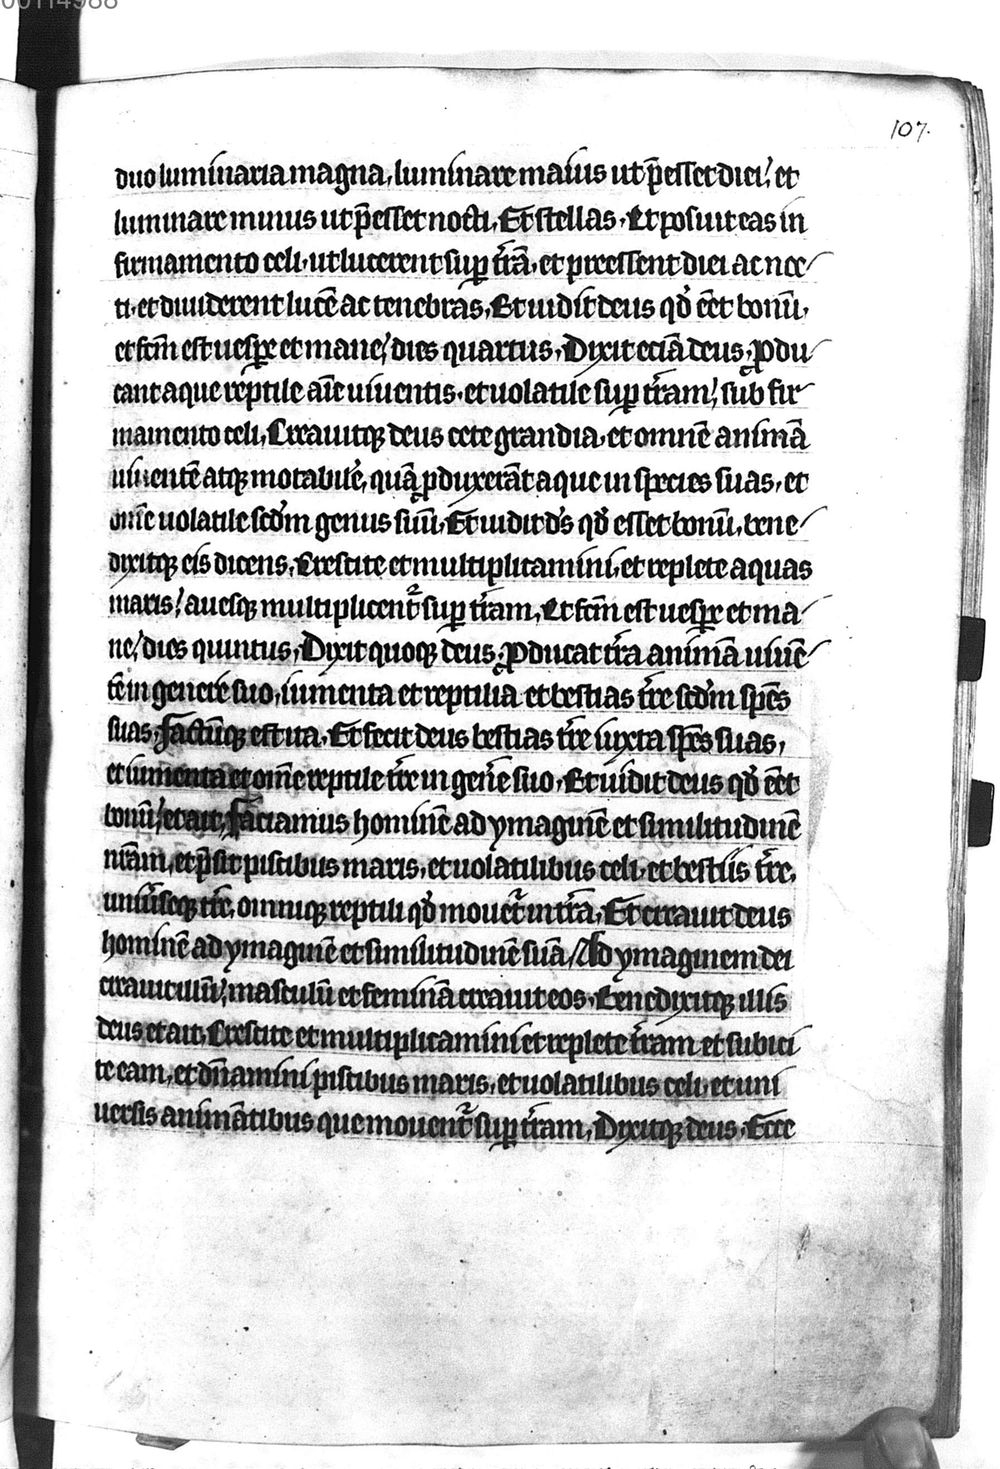 00114988
107.
duo luminaria magna, luminare maius ut p̄esset diei, et
luminare minus ut p̄esset nocti, Et stellas. Et posuit eas in
firmamento celi, ut lucerent suꝑ t̄rā, et preessent diei ac noc
ti, et diuiderent lucē ac tenebras, Et uidit deus qđ eēt bonū,
et fc̄m est uesꝑe et mane, dies quartus, Dixit eciā deus, Ꝓdu
cant aque reptile aīe uiuentis, et uolatile suꝑ t̄ram, sub fir
mamento celi, Creauitqꝫ deus cete grandia, et omnē animā
uiuentē atqꝫ motabilē, quā ꝓduxerāt aque in species suas, et
om̄e uolatile scđm genus suū, Et uidit d̄s qđ esset bonū, bene
dixitqꝫ eis dicens, Crescite et multiplicamini, et replete aquas
maris, auesqꝫ multiplicent᷑ suꝑ t̄ram, Et fc̄m est uesꝑe et ma
ne, dies quintus, Dixit quoqꝫ deus, Ꝓducat t̄ra animā uiuē
tē in genere suo, iumenta et reptilia et bestias t̄re scđm sp̄es
suas, factūqꝫ est ita, Et fecit deus bestias t̄re iuxta sp̄es suas,
et iumenta et om̄e reptile t̄re in gen̄e suo, Et uidit deus qđ eēt
bonū, et ait, Faciamus hominē ad ymaginē et similitudinē
nr̄am, et p̄sit piscibus maris, et uolatilibus celi, et bestiis t̄re,
uniūseqꝫ t̄re, omniqꝫ reptili qđ mouet᷑ in t̄ra, Et creauit deus
hominē ad ymaginē et similitudinē suā, Ad ymaginem dei
creauit illū, masculū et feminā creauit eos, Benedixitqꝫ illis
deus et ait, Crescite et multiplicamini et replete t̄ram et subici
te eam, et dn̄amini piscibus maris, et uolatilibus celi, et uni
uersis animātibus que mouent᷑ suꝑ t̄ram, Dixitqꝫ deus, Ecce